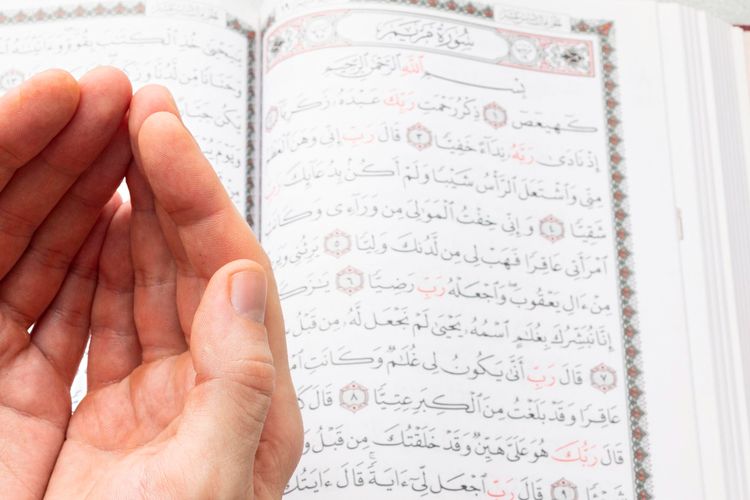 سُورَةُ مَرْيَمَ
بِسْمِ ٱللَّهِ ٱلرَّحْمَٰنِ ٱلرَّحِيمِ
كٓهيعٓصٓ ١ ذِكْرُ رَحْمَتِ رَبِّكَ عَبْدَهُۥ زَكَرِيَّآ
إِذْ نَادَىٰ رَبَّهُۥ نِدَآءً خَفِيًّا ٣ قَالَ رَبِّ إِنِّي وَهَنَ ٱلْعَظْمُ
مِنِّي وَٱشْتَعَلَ ٱلرَّأْسُ شَيْبًا وَلَمْ أَكُنۢ بِدُعَآئِكَ رَبِّ
شَقِيًّا ٤ وَإِنِّي خِفْتُ ٱلْمَوَٰلِيَ مِن وَرَآءِي وَكَانَ
ٱمْرَأَتِي عَاقِرًا فَهَبْ لِي مِن لَّدُنكَ وَلِيًّا ٥ يَرِثُنِي
مِنْ ءَالِ يَعْقُوبَ وَٱجْعَلْهُ رَبِّ رَضِيًّا ٦ يَٰزَكَ
إِنَّا نُبَشِّرُكَ بِغُلَٰمٍ ٱسْمُهُۥ يَحْيَىٰ لَمْ نَجْعَل لَّهُۥ مِن قَبْلُ
٧ قَالَ رَبِّ أَنَّىٰ يَكُونُ لِي غُلَٰمٌ وَكَانَتِ
عَاقِرًا وَقَدْ بَلَغْتُ مِنَ ٱلْكِبَرِ عِتِيًّا ٨ قَالَ
قَالَ رَبُّكَ هُوَ عَلَيَّ هَيِّنٌ وَقَدْ خَلَقْتُكَ مِن قَبْلُ
شَيْـًٔا ٩ قَالَ رَبِّ ٱجْعَل لِّيٓ ءَايَةً قَالَ ءَايَتُكَ
يَٰيَحْيَىٰ خُذِ ٱلْكِتَٰبَ بِقُوَّةٍ وَءَاتَيْنَٰهُ
وَحَنَانًا مِّن لَّدُنَّا